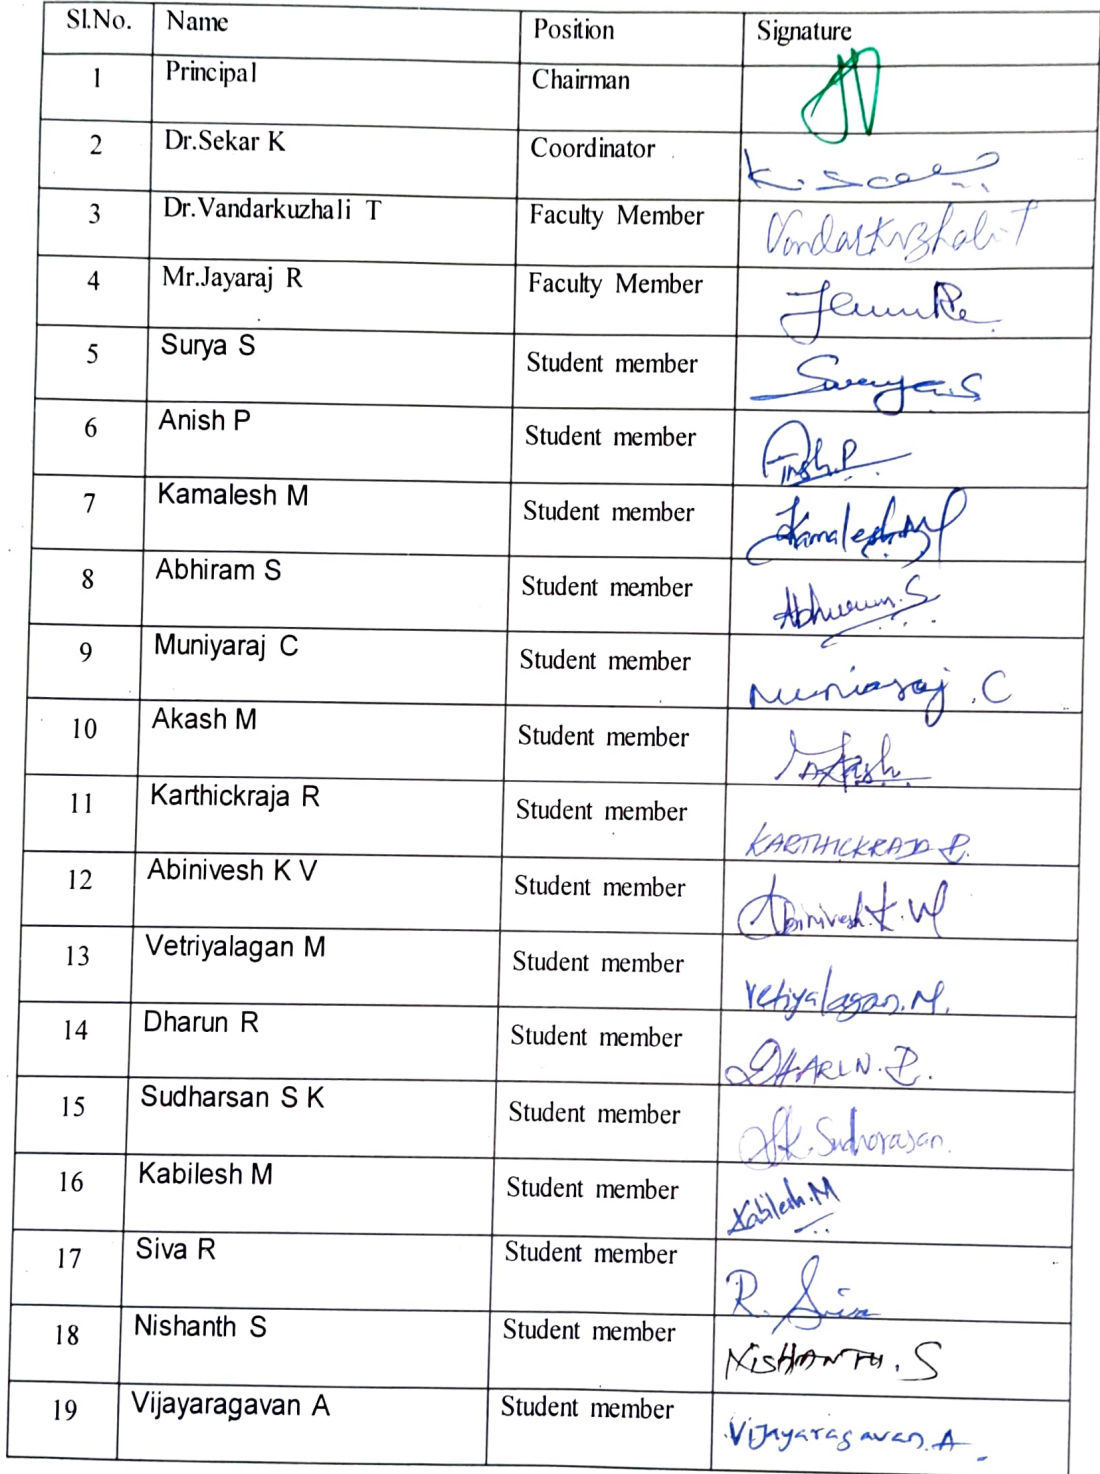 Sl.No. Name Position Signature
1 Principal Chairman
2 Dr.Sekar K Coordinator K.
3 Dr.Vandarkuzhali T Faculty Member Vandarkuzhali T
4 Mr.Jayaraj R Faculty Member
5 Surya S Student member Surya.S
6 Anish P Student member Anish.P
7 Kamalesh M Student member Kamalesh.M
8 Abhiram S Student member Abhiram.S
9 Muniyaraj C Student member Muniaraj.C
10 Akash M Student member Akash
11 Karthickraja R Student member KARTHICKRAJA R.
12 Abinivesh K V Student member Abinivesh.K.V
13 Vetriyalagan M Student member Vetiyalagan.M.
14 Dharun R Student member DHARUN.R.
15 Sudharsan S K Student member S.K.Sudharasan.
16 Kabilesh M Student member Kabilesh.M
17 Siva R Student member R. Siva
18 Nishanth S Student member NISHANTH.S
19 Vijayaragavan A Student member Vijayaragavan.A